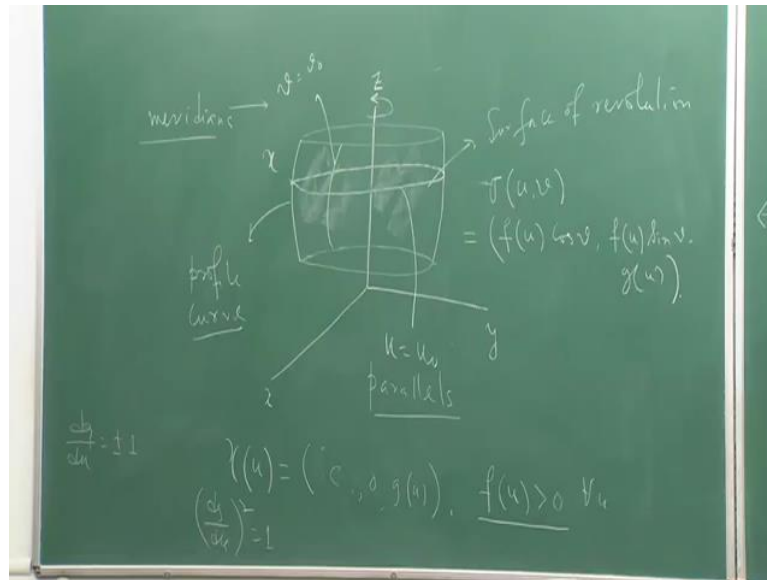 v = v₀
z
meridians
Surface of revolution
γ
σ(u,v)
= (f(u) cos v, f(u) sin v,
g(u)).
profile
curve
y
u = u₀
parallels
x
dg/du = ±1
γ(u) = ( c , 0, g(u)), f(u)>0 ∀u
(dg/du)² = 1